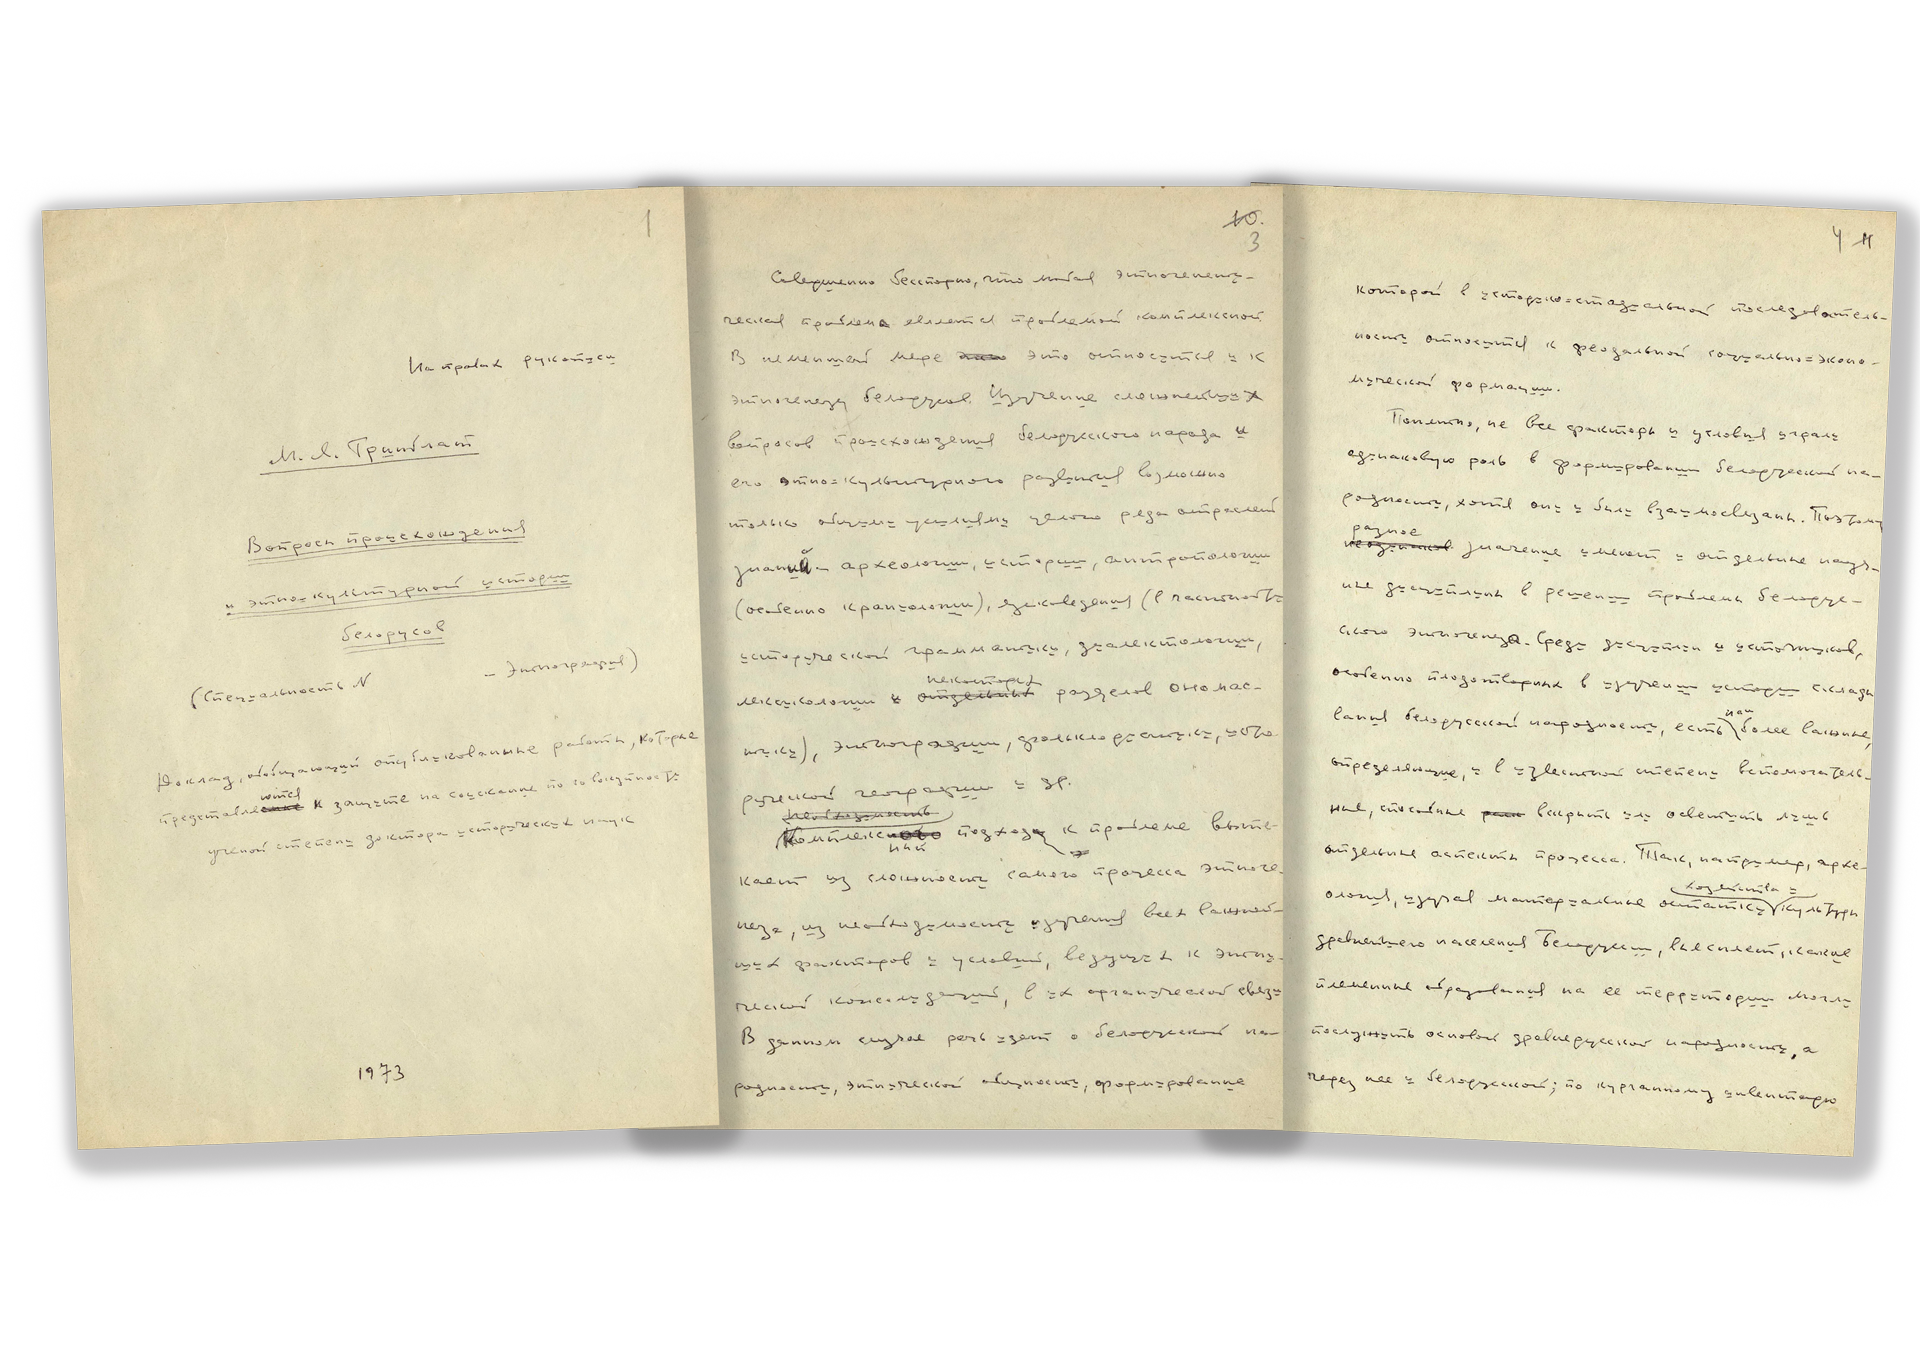 1
На правах рукописи
М. Я. Гринблат
Вопросы происхождения
и этно-культурной истории
белорусов
(Специальность N – Этнография)
Доклад, обобщающий опубликованные работы, которые
ются
представлены к защите на соискание по совокупности
ученой степени доктора исторических наук
1973
10.
3
Совершенно бесспорно, что любая этногенети-
ческая проблема является проблемой комплексной
В неменьшей мере это относится и к
этногенезу белорусов. Изучение сложнейших
вопросов происхождения белорусского народа и
его этно-культурного развития возможно
только общими усилиями целого ряда отраслей
знаний – археологии, истории, антропологии
(особенно краниологии), языковедения (в частности
исторической грамматики, диалектологии,
некоторых
лексикологии и отдельных разделов ономас-
тики), этнографии, фольклористики, исто
рической географии и др.
Необходимость
Комплексного подхода к проблеме выте-
ный
кает из сложности самого процесса этноге-
неза, из необходимости изучения всех важней-
ших факторов и условий, ведущих к этни-
ческой консолидации, в их органической связи
В данном случае речь идет о белорусской на-
родности, этнической общности, формирование
4 11
которой в историко-стадиальной последователь-
ности относится к феодальной социально-эконо-
мической формации.
Понятно, не все факторы и условия играли
одинаковую роль в формировании белорусской на-
родности, хотя они и были взаимосвязаны. Поэтому
разное
значение имеют и отдельные науч-
ные дисциплины в решении проблемы белорус-
ского этногенеза. Среди дисциплин и источников,
особенно плодотворных в изучении истории склады
наи
вания белорусской народности, есть более важные,
определяющие, и в известной степени вспомогатель-
ные, способные вскрыть или осветить лишь
отдельные аспекты процесса. Так, например, архе-
хозяйства и
ология, изучая материальные остатки культуры
древнейшего населения Белоруссии, выясняет, какие
племенные образования на ее территории могли
послужить основой древнерусской народности, а
через нее и белорусской; по курганному инвентарю